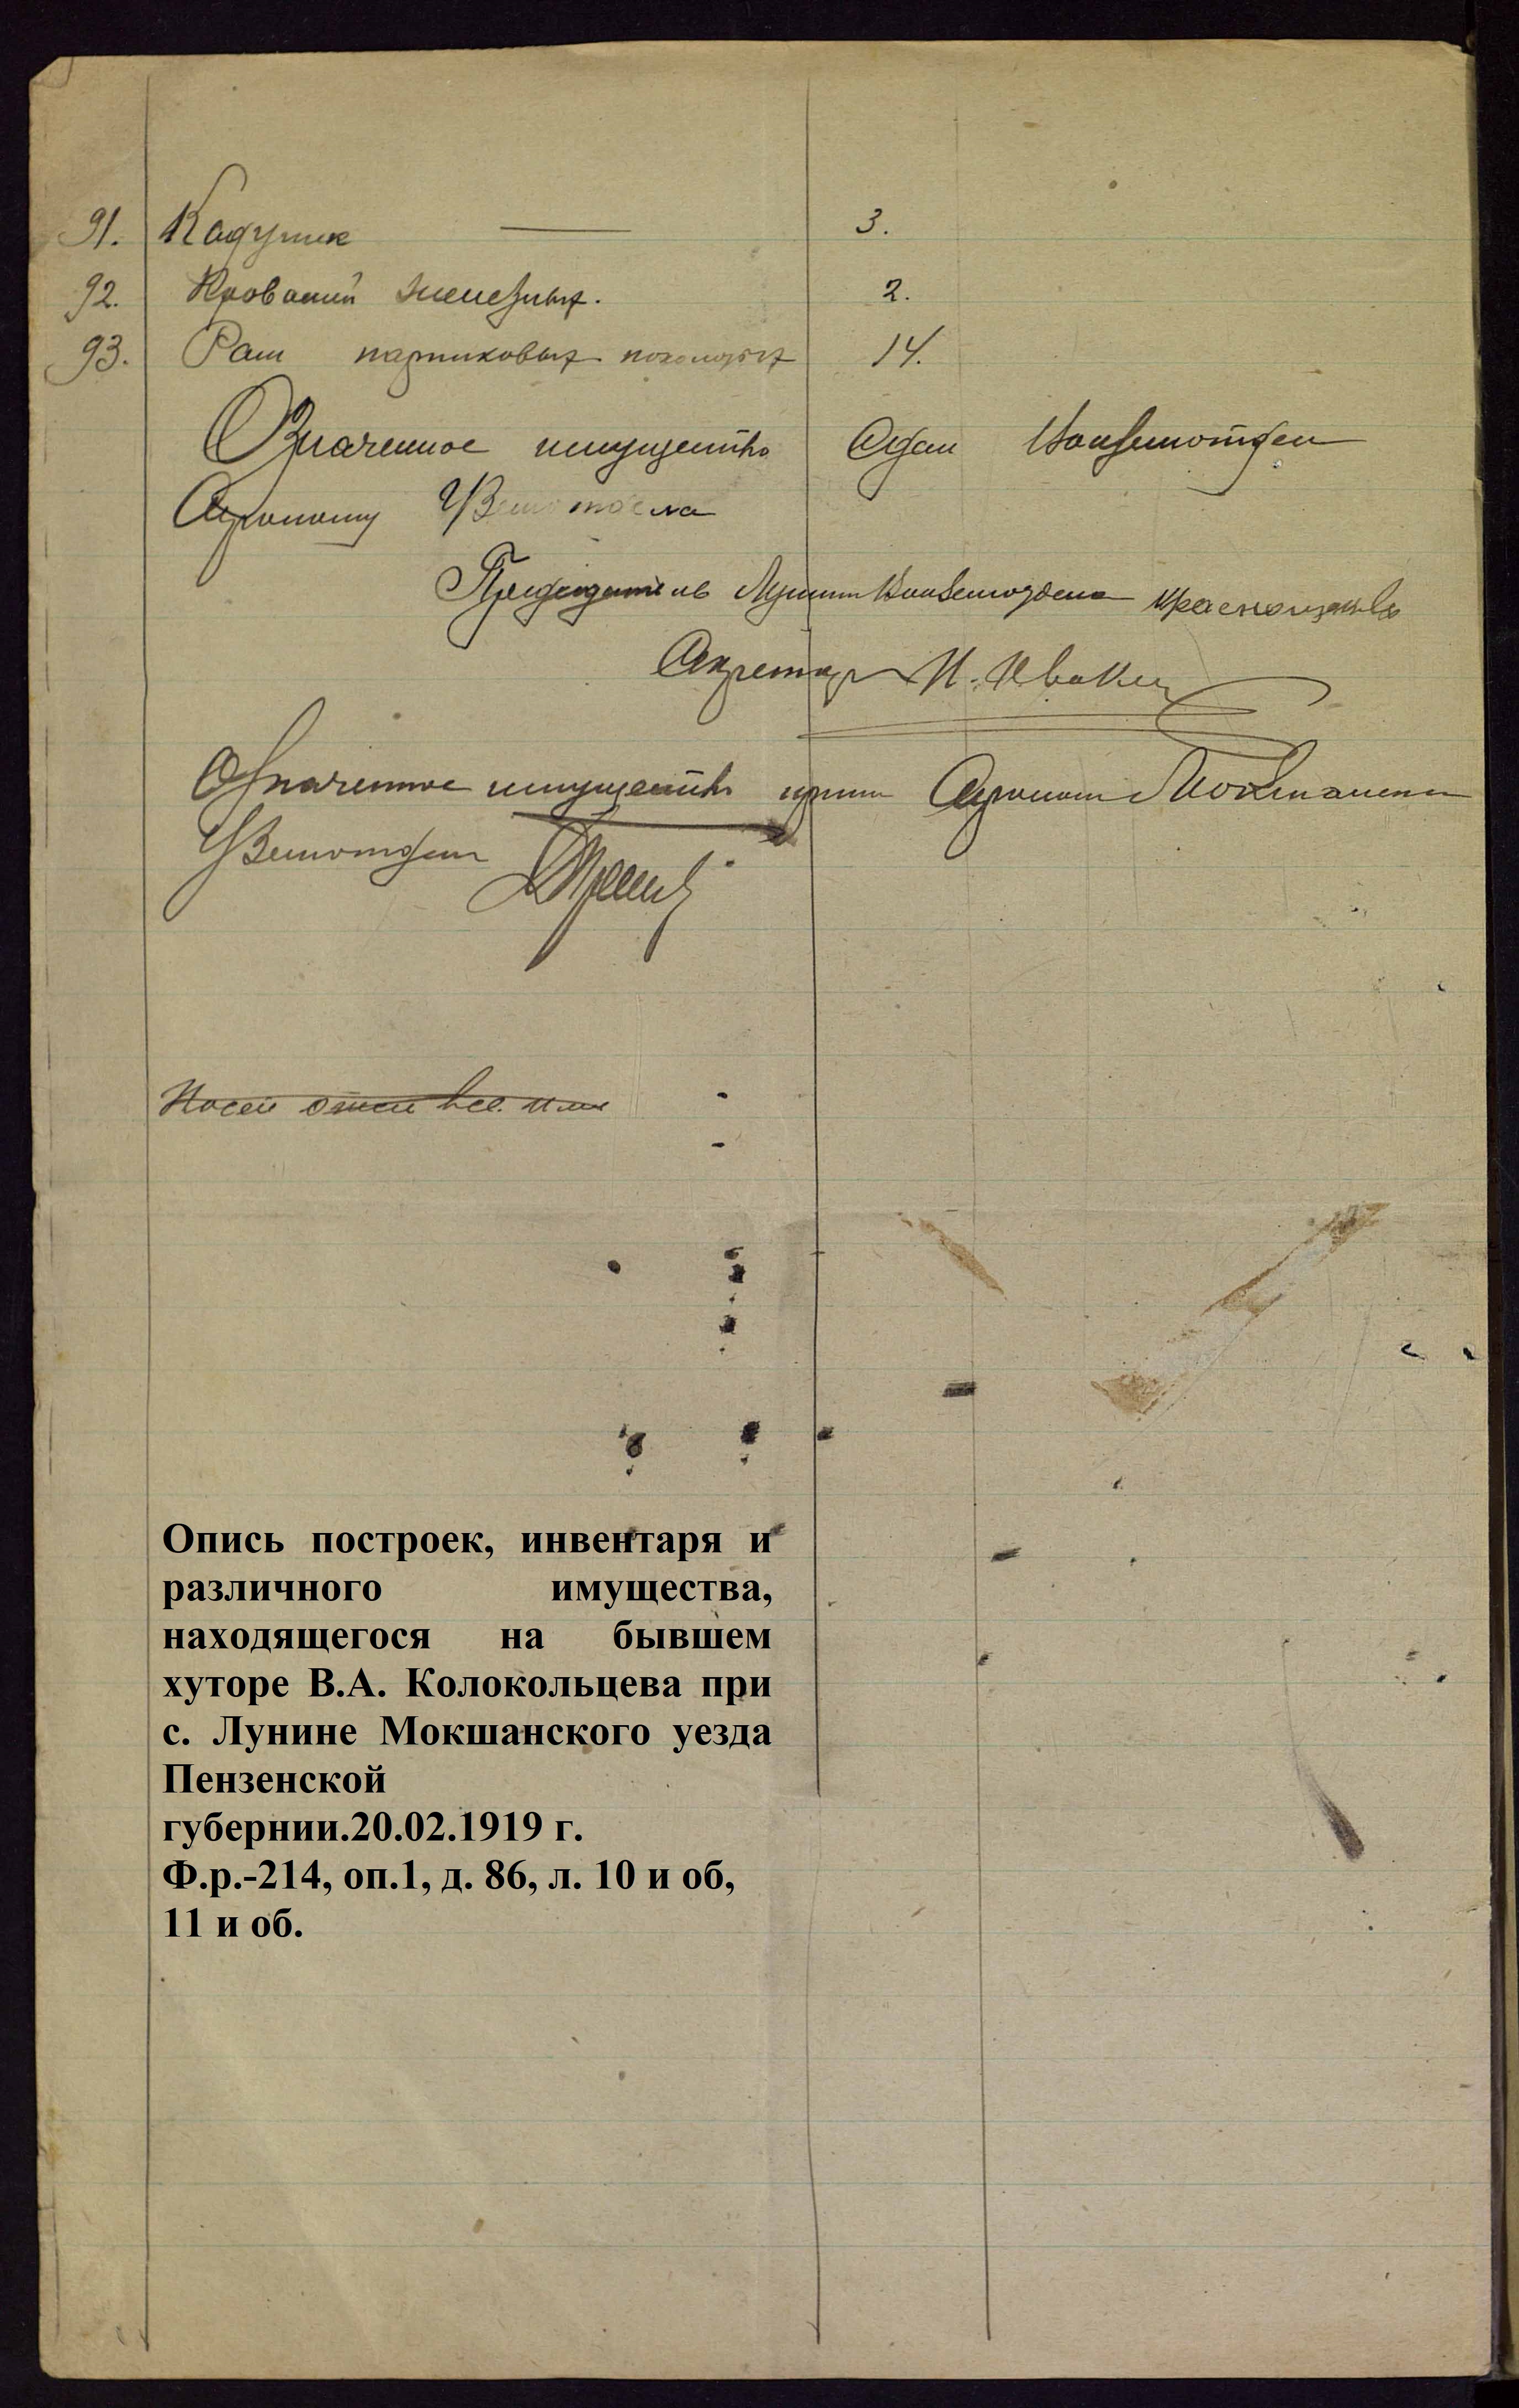 91. Кадушек — 3.
92. Кроватей железных. 2.
93. Рам парниковых 14.
Означенное имущество Сдал
Агроному УЗемотдела
Председатель Лунин Волземотдела
Секретар И. Ивакин
Означенное имущество принял Агроном Мокшанск
УЗемотдела
Опись построек, инвентаря и
различного имущества,
находящегося на бывшем
хуторе В.А. Колокольцева при
с. Лунине Мокшанского уезда
Пензенской
губернии.20.02.1919 г.
Ф.р.-214, оп.1, д. 86, л. 10 и об,
11 и об.